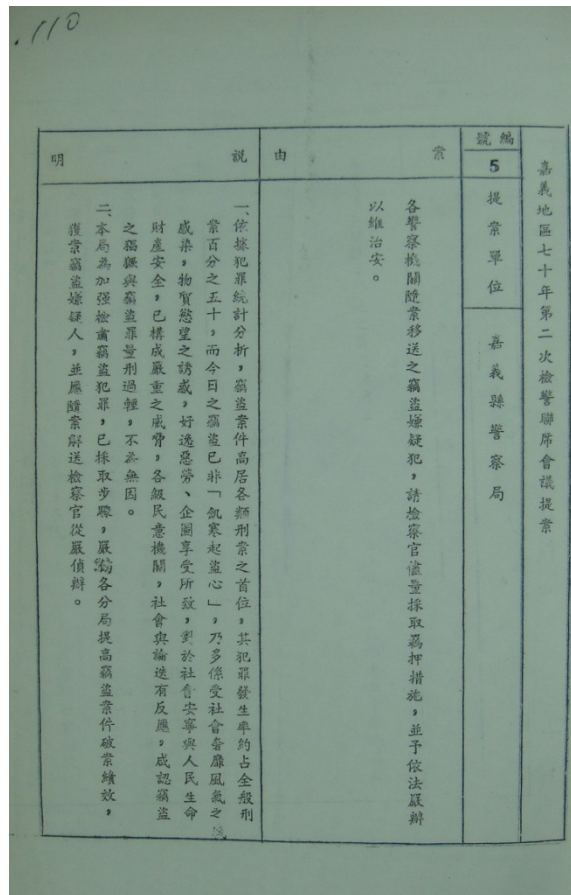 .110
嘉義地區七十年第二次檢警聯席會議提案
編號
5
提案單位
嘉義縣警察局
案由
各警察機關隨案移送之竊盜嫌疑犯,請檢察官儘量採取羈押措施,並予依法嚴辦
以維治安。
說明
一、依據犯罪統計分析,竊盜案件高居各類刑案之首位,其犯罪發生率約占全般刑
案百分之五十,而今日之竊盜已非「飢寒起盜心」,乃多係受社會奢靡風氣之
感染,物質慾望之誘惑,好逸惡勞、企圖享受所致,對於社會安寧與人民生命
財產安全,已構成嚴重之威脅,各級民意機關,社會輿論迭有反應,咸認竊盜
之猖獗與竊盜罪量刑過輕,不無無因。
二、本局為加强檢肅竊盜犯罪,已採取步驟,嚴飭各分局提高竊盜案件破案績效,
獲案竊盜嫌疑人,並應隨案解送檢察官從嚴偵辦。